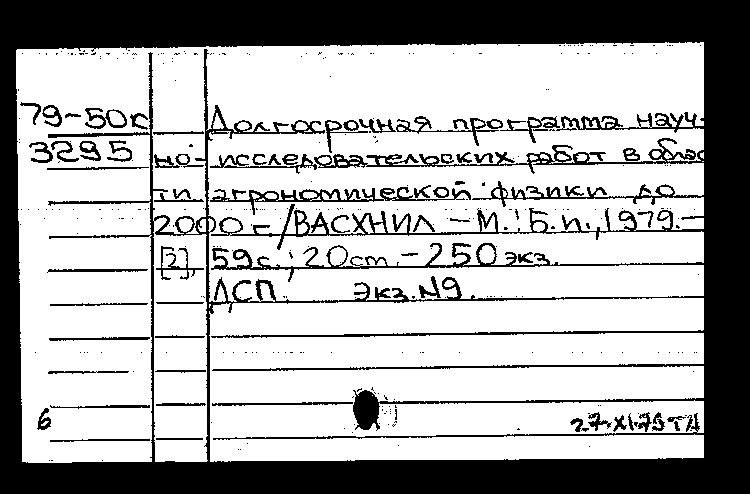 79-50к Долгосрочная программа науч-
3295 но-исследовательских работ в облас
ти агрономической физики до
2000 г. / ВАСХНИЛ – М.: Б.и., 1979.–
[2], 59с.; 20см. – 250 экз.
ДСП. Экз. N9.
6 27.XI.79